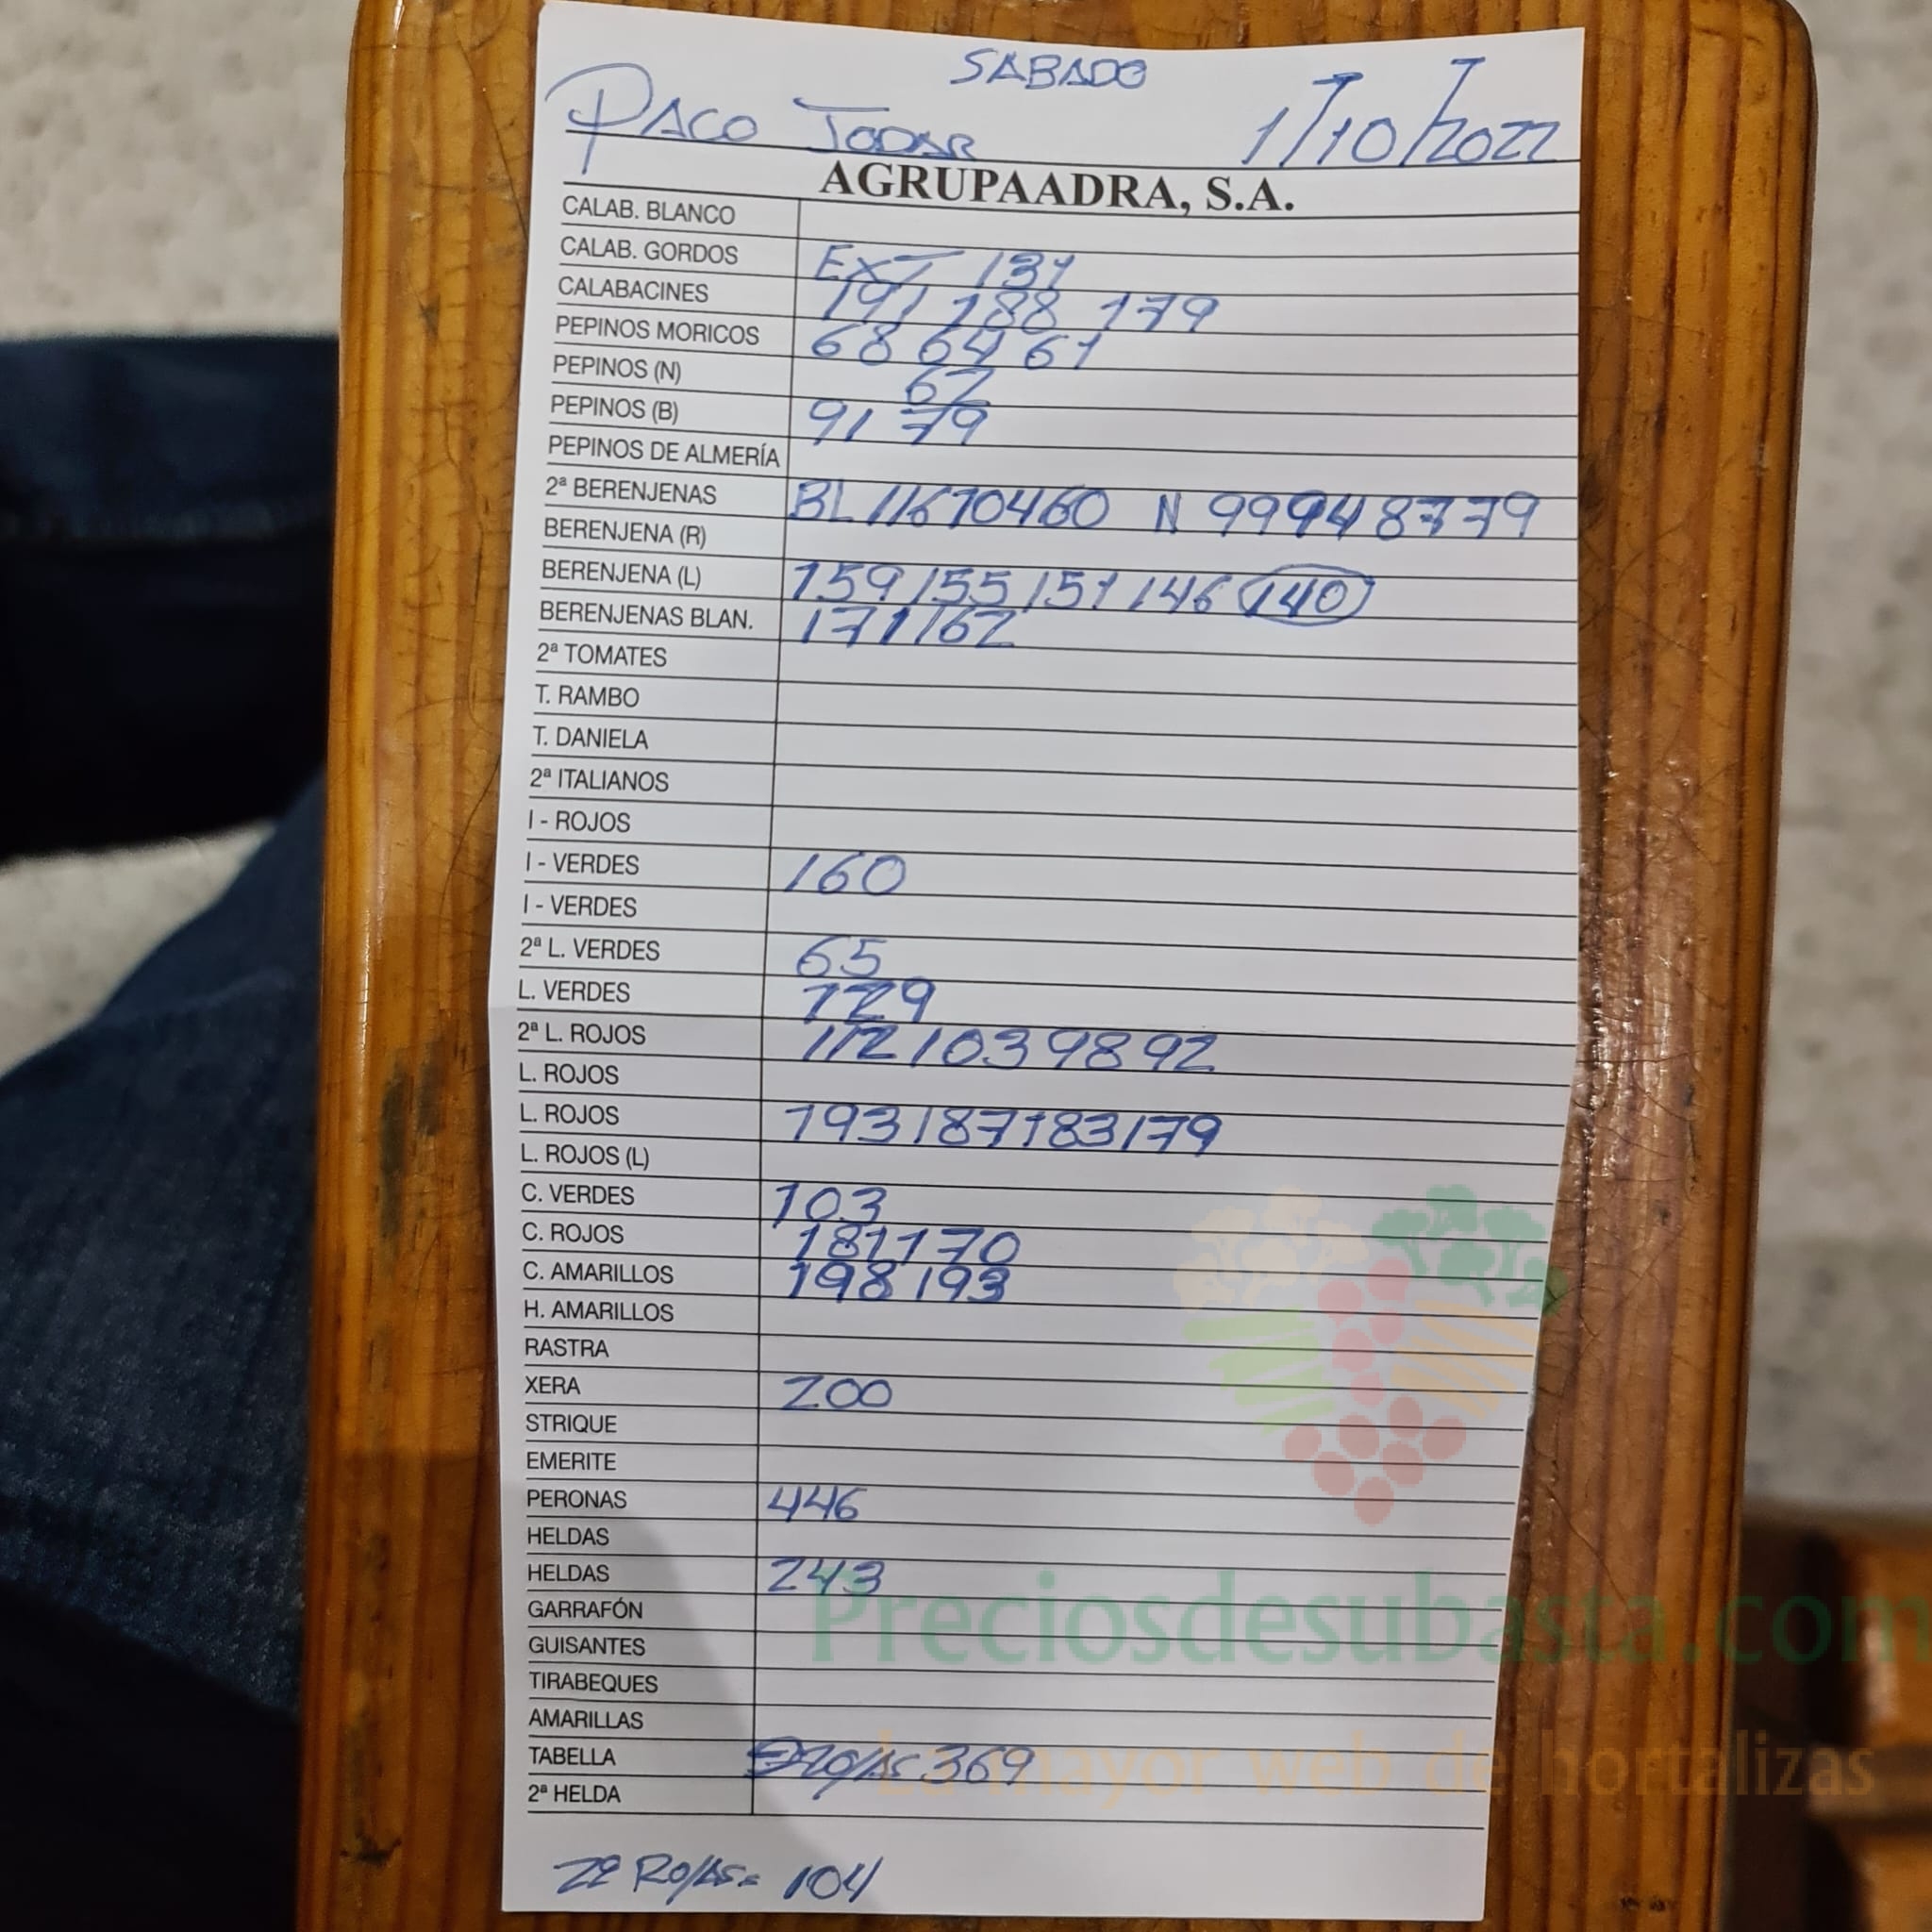 SABADO
PACO JODAR 1/10/2022
AGRUPAADRA, S.A.
CALAB. BLANCO
CALAB. GORDOS EXT 131
CALABACINES 191 188 179
PEPINOS MORICOS 68 64 61
PEPINOS (N) 62
PEPINOS (B) 91 79
PEPINOS DE ALMERÍA
2ª BERENJENAS BL 116 104 60 N 99 94 87 79
BERENJENA (R)
BERENJENA (L) 159 155 151 146 140
BERENJENAS BLAN. 171 162
2ª TOMATES
T. RAMBO
T. DANIELA
2ª ITALIANOS
I - ROJOS
I - VERDES 160
I - VERDES
2ª L. VERDES 65
L. VERDES 129
2ª L. ROJOS 112 103 98 92
L. ROJOS
L. ROJOS 193 187 183 179
L. ROJOS (L)
C. VERDES 103
C. ROJOS 181 170
C. AMARILLOS 198 193
H. AMARILLOS
RASTRA
XERA 200
STRIQUE
EMERITE
PERONAS 446
HELDAS
HELDAS 243
GARRAFÓN
GUISANTES
TIRABEQUES
AMARILLAS
TABELLA 369
2ª HELDA
2ª ROJAS= 104
Preciosdesubasta.com
La mayor web de hortalizas